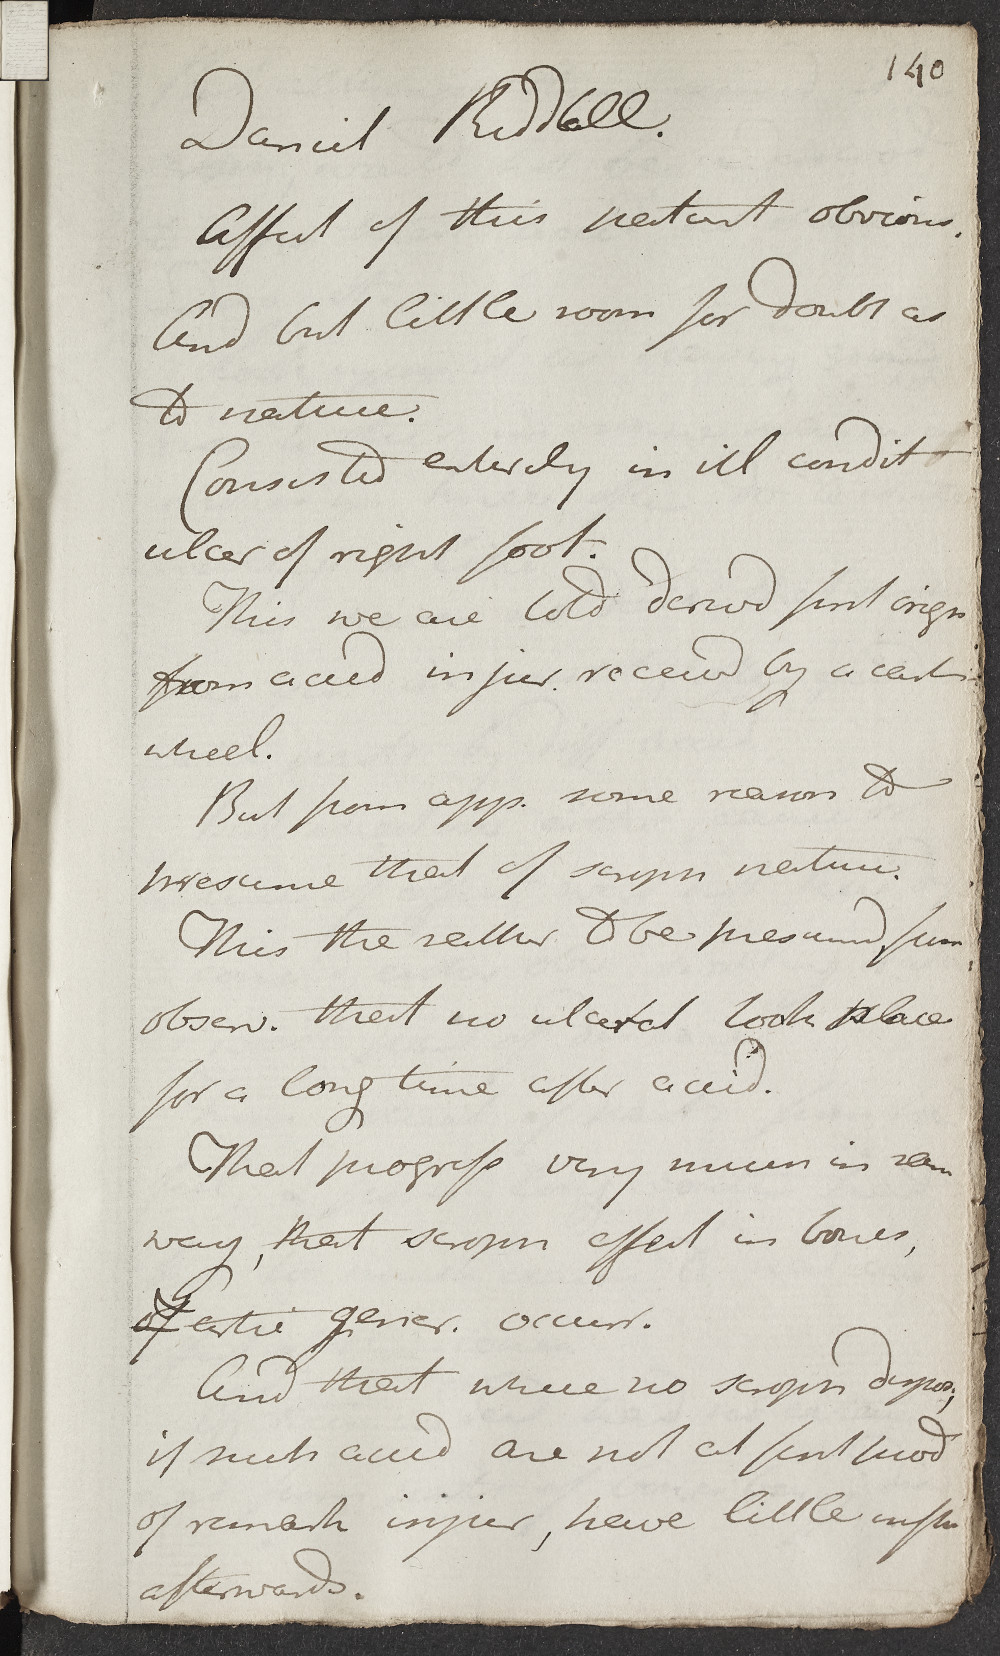 140
Daniel Riddall.
Affect of this patient obvious.
And but little room for doubt as
to nature.
Consisted enterely in ill condit
ulcer of right foot.
This we are told derivd first origin
from accid injur. receivd by a cart
wheel.
But from app. some reason to
presume that of scroph nature.
This the rather to be presumd from
observ. that no ulcerat took place
for a long time after accid.
That progress very much in same
way, that scroph affect in bones,
of artic gener. occurr.
And that where no scroph dispos,
if such accid are not at first prod
of remark injur, have little influ
afterwards.